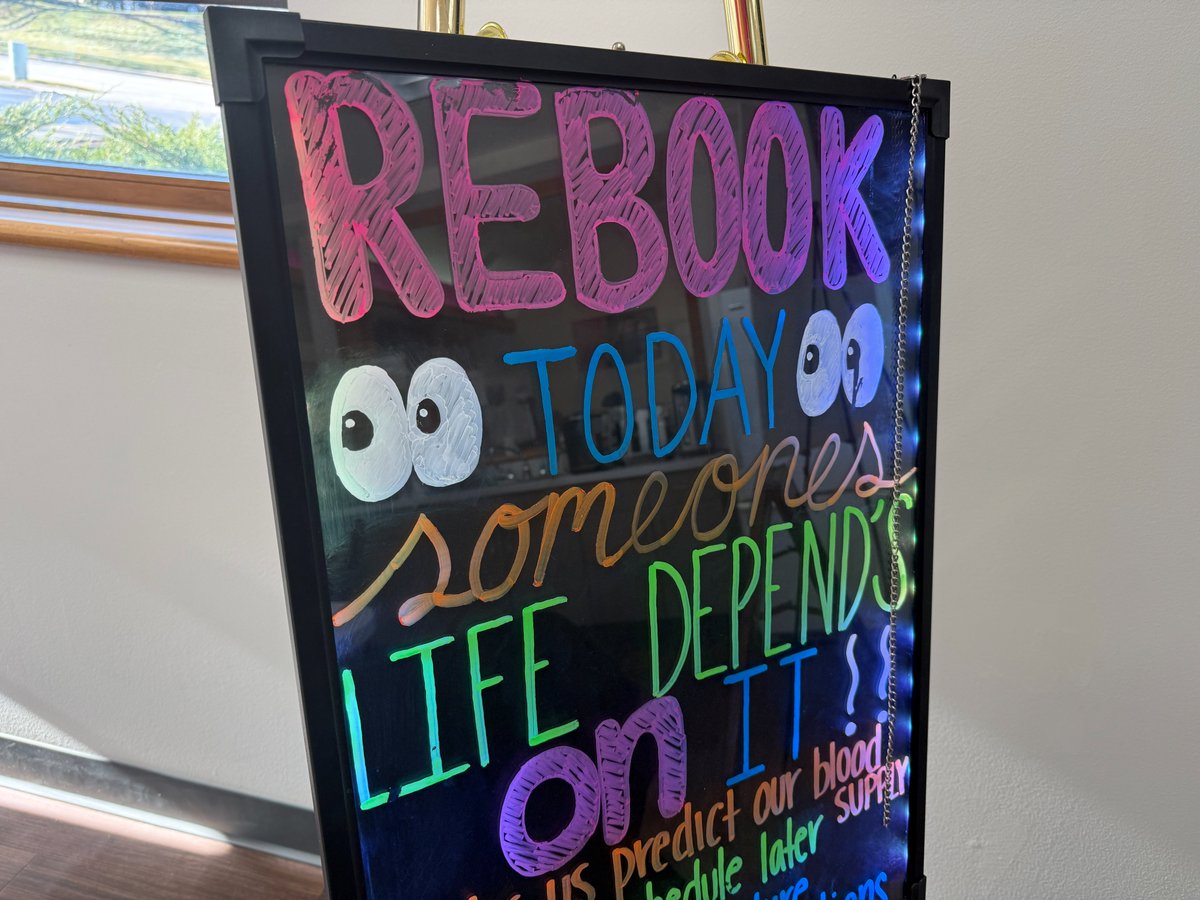 REBOOK
TODAY
someones
LIFE DEPEND'S
on IT !!
us predict our blood SUPPLY
later